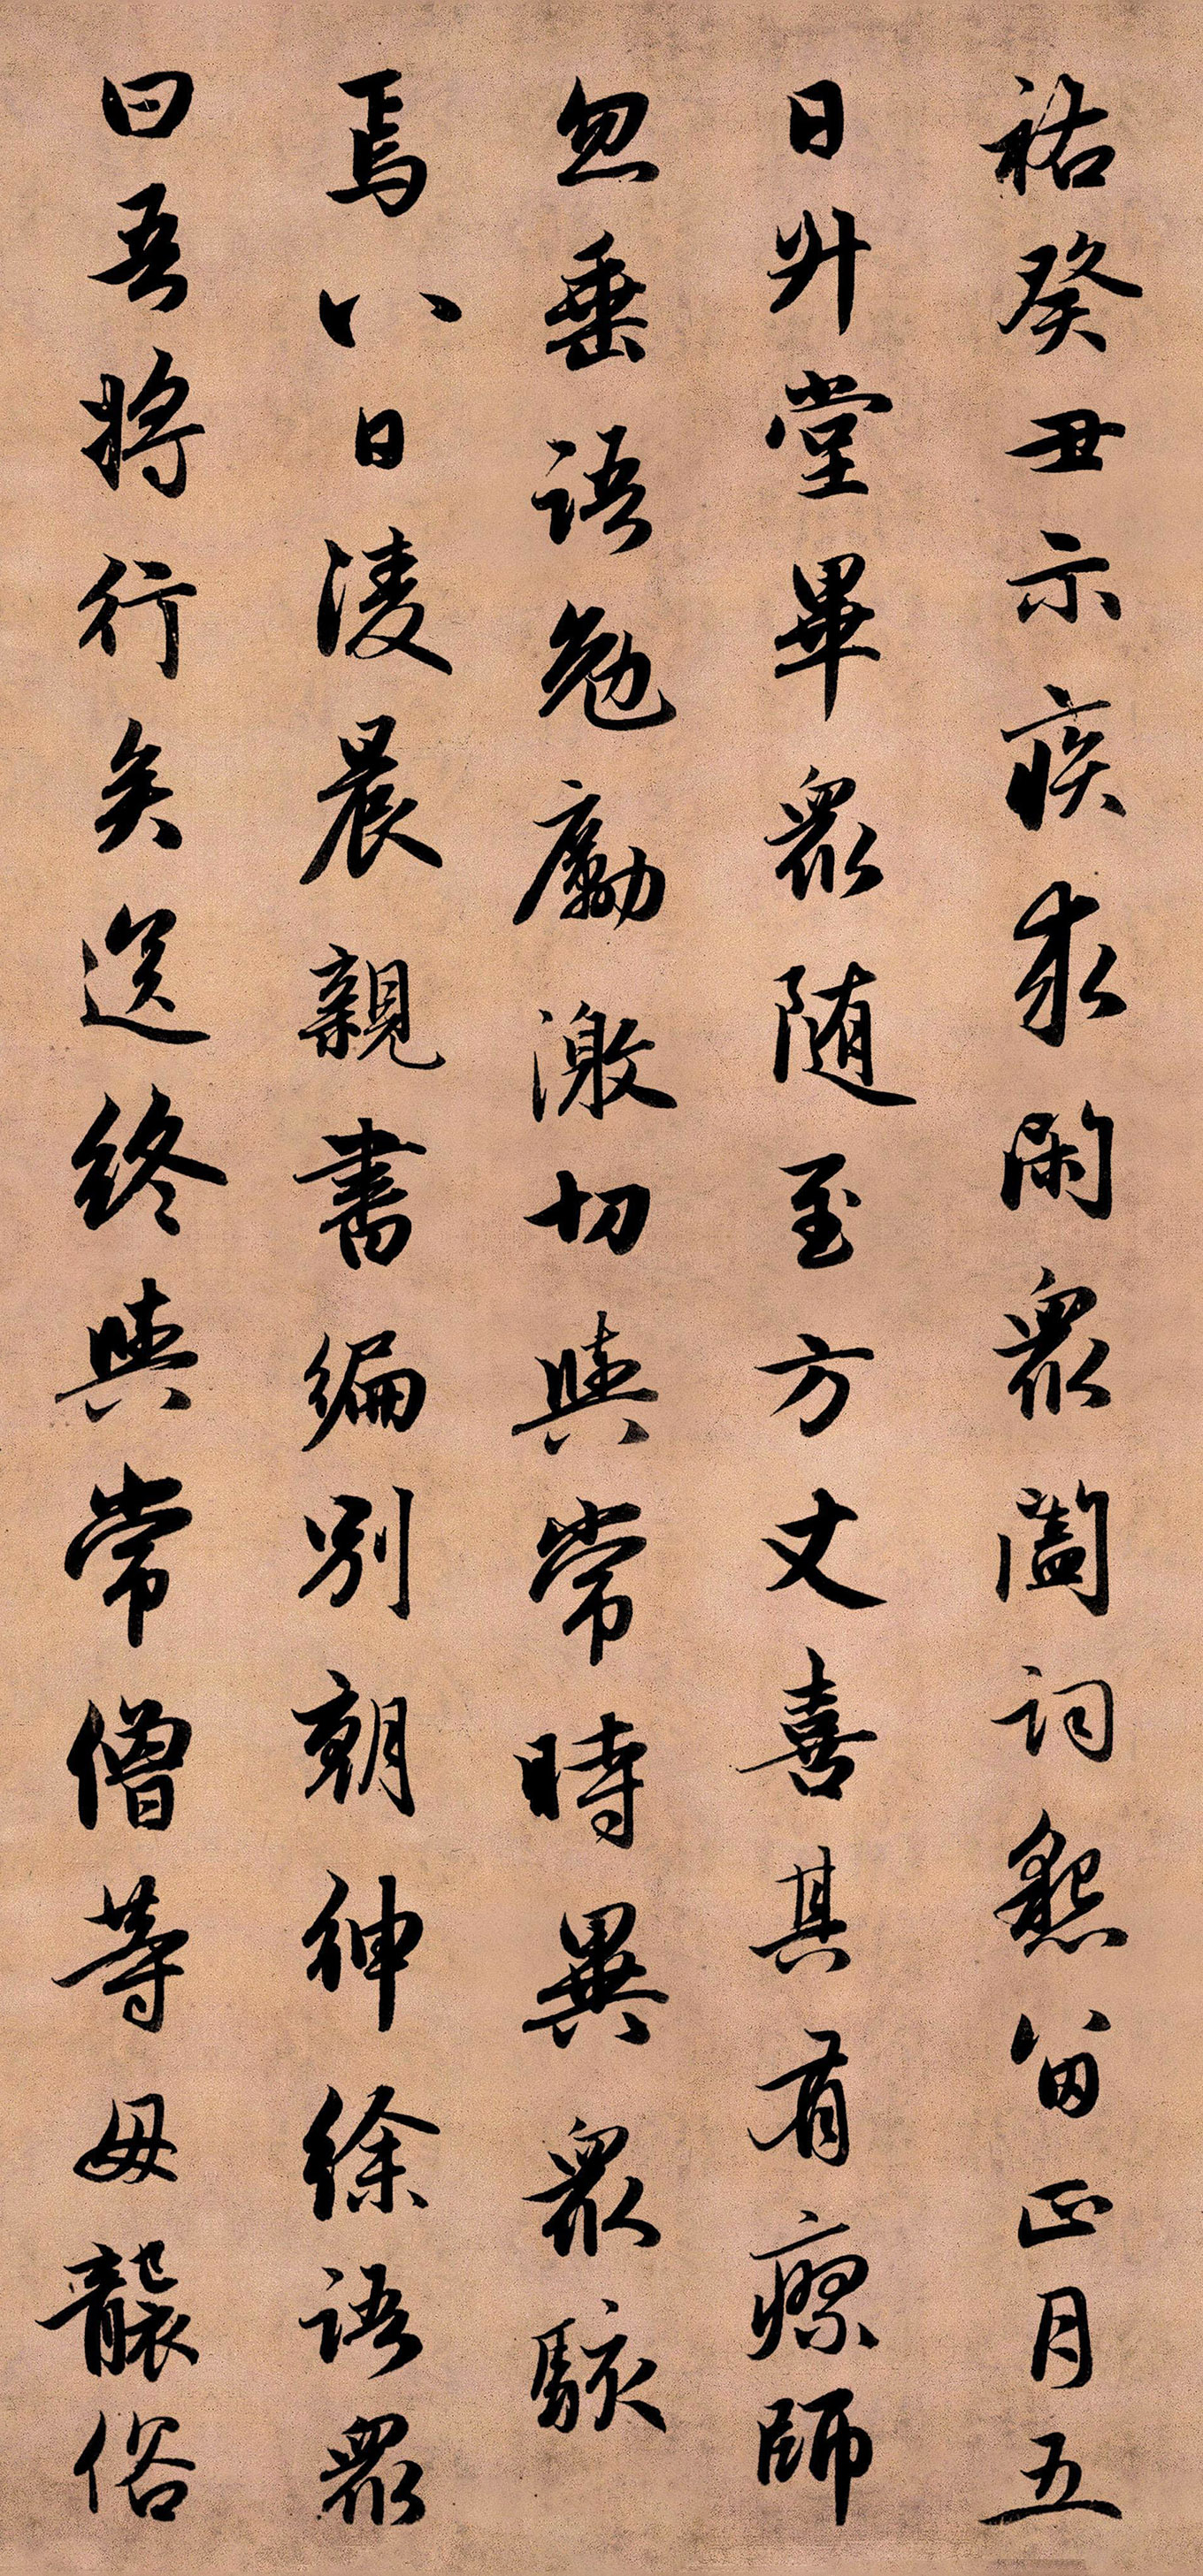 祐癸丑示疾求閑衆闔詞懇留正月五
日升堂畢衆随至方丈喜其有瘳師
忽垂語勉勵激切與常時異衆駭
焉八日凌晨親書徧別朝紳徐語衆
曰吾將行矣送終與常僧等毋襲俗